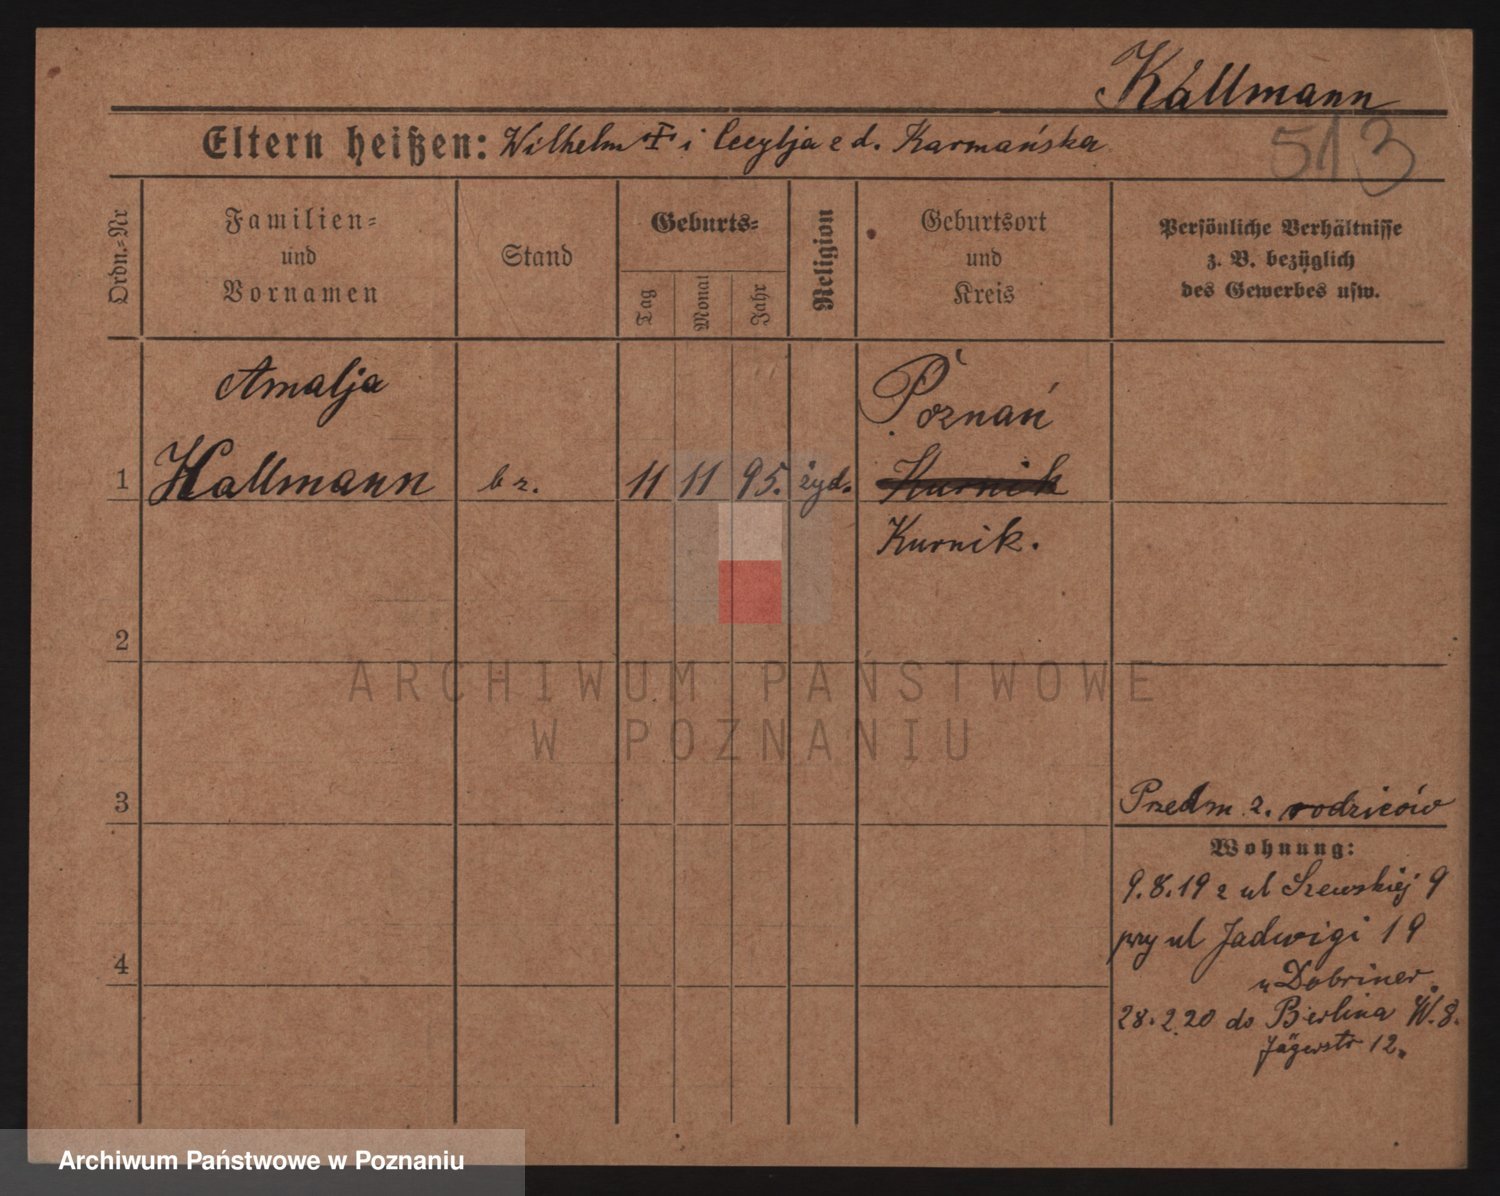 Kallmann
513
Eltern heißen: Wilhelm i Cecylja e d. Karmańska
Ordn.=Nr
Familien=
und
Vornamen
Stand
Geburts=
Tag
Monat
Jahr
Religion
Geburtsort
und
Kreis
Persönliche Verhältnisse
z. B. bezüglich
des Gewerbes usw.
Amalja
Poznań
1 Kallmann bz. 11 11 95. żyd. Kurnik
Kurnik.
2
ARCHIWUM PAŃSTWOWE
W POZNANIU
3
Przedm z. rodziców
Wohnung:
9.8.19 z ul Szewskiej 9
przy ul Jadwigi 19
4
u Dobriner.
28.2.20 do Berlina W.8.
Jägerstr 12.
Archiwum Państwowe w Poznaniu